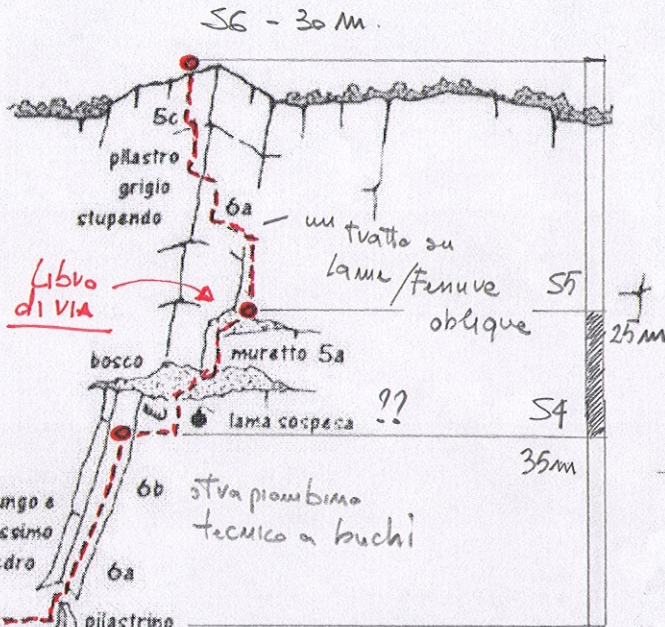 S6 - 30 m.
5c
pilastro
grigio
stupendo
6a
un tratto su
lame/Fessure
oblique
S5
25m
Libro
di VIA
muretto 5a
bosco
lama sospesa ??
S4
35m
6b
strapiombino
tecnico a buchi
6a
pilastrino